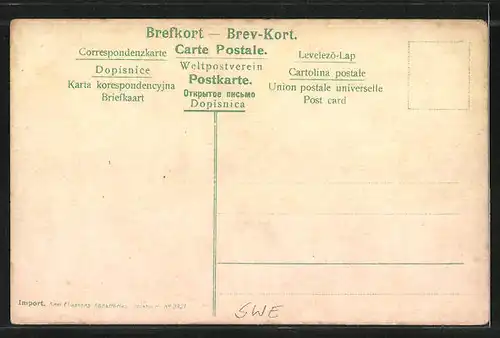 Brefkort — Brev-Kort.
Correspondenzkarte Carte Postale. Levelező-Lap
Dopisnice Weltpostverein Cartolina postale
Karta korespondencyjna Postkarte. Union postale universelle
Briefkaart Открытое письмо Post card
Dopisnica
Import.
SWE